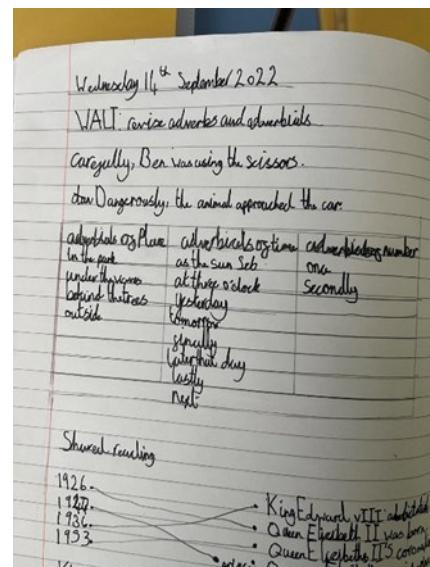 Wednesday 14th September 2022
WALT: revise adverbs and adverbials
Carefully, Ben was using the scissors.
Dangerously, the animal approached the car.
adverbials of Place adverbials of time adverbials of number
in the park as the sun set once
under the at three o'clock secondly
behind the trees yesterday
outside tomorrow
finally
later that day
lastly
next
Shared reading
1926
1936
1953
King Edward VIII abdicated
Queen Elizabeth II was born
Queen Elizabeth II's